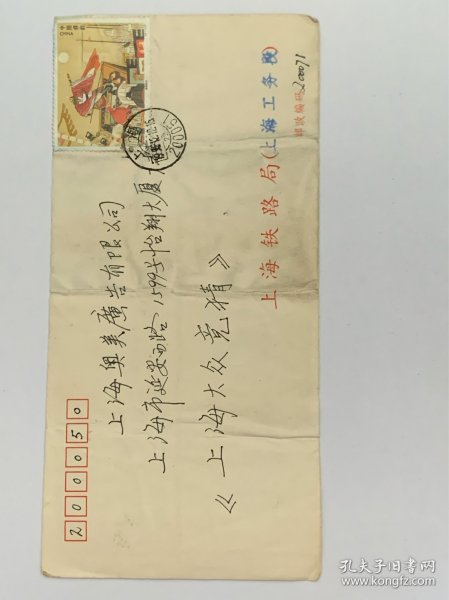 200050
中国邮政
CHINA
上海市延安西路1599号怡翔大厦
上海奥美廣告有限公司
《上海大众竞猜》
上海铁路局(上海工务段)
邮政编码200071
孔夫子旧书网
www.kongfz.com